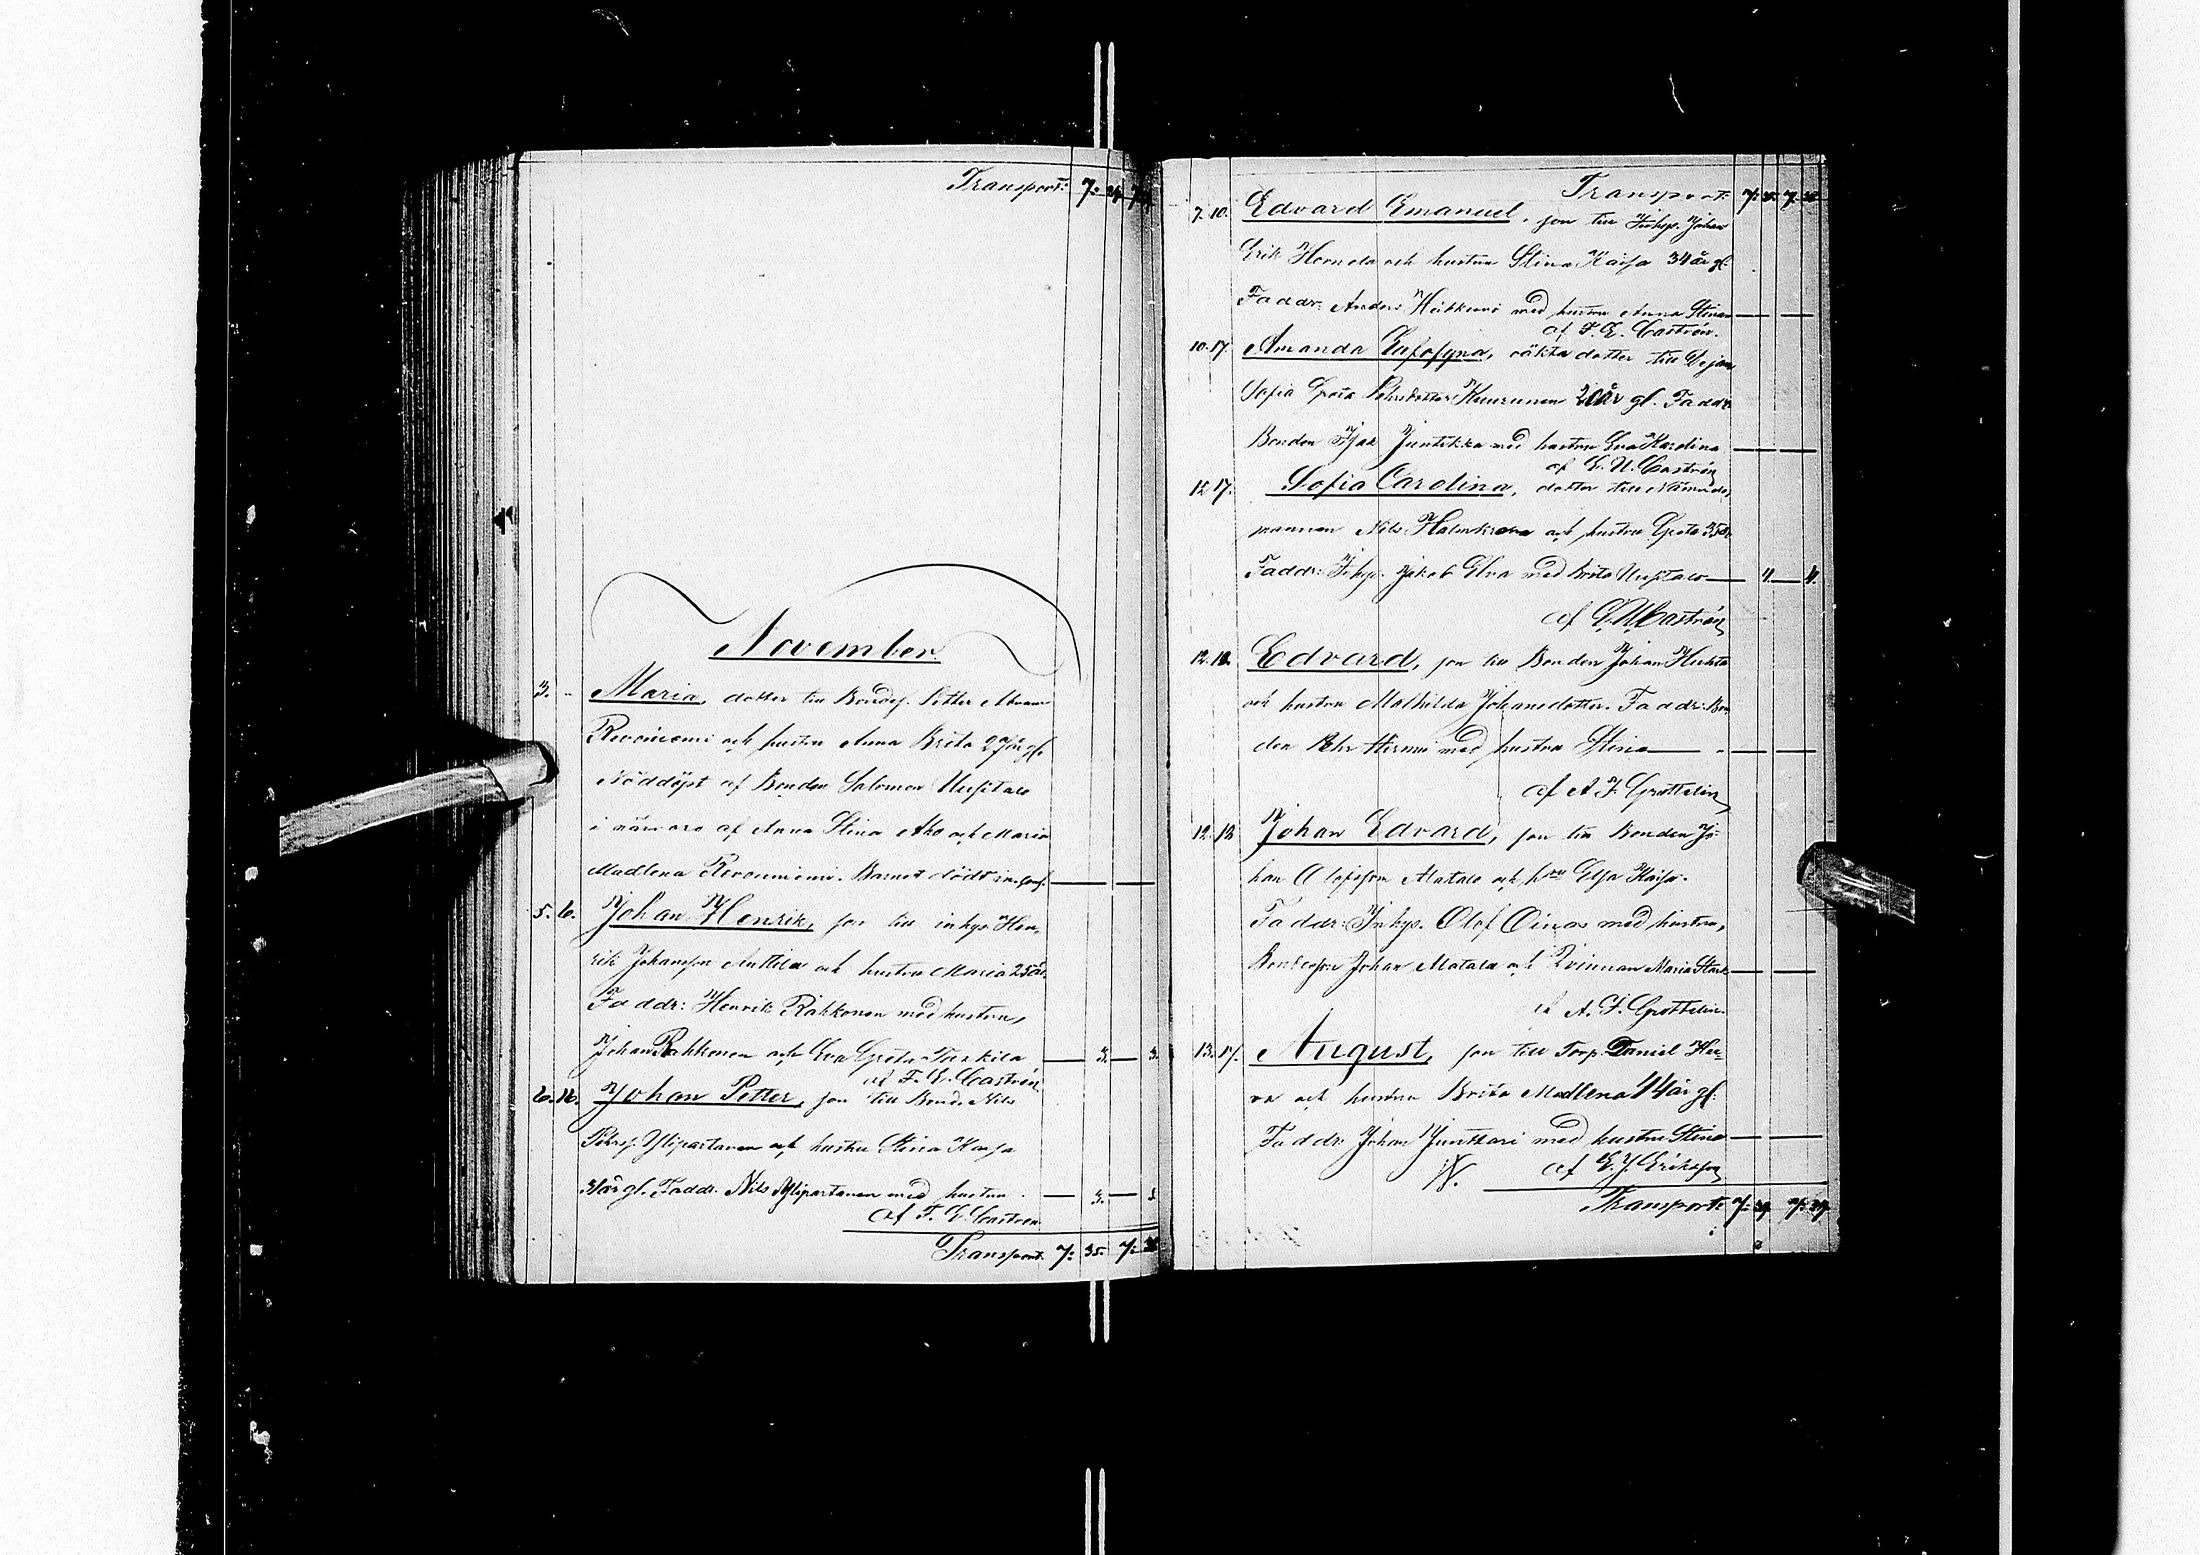 Transport: 7: 29. 7:
November.
3. Maria, dotter till Bondes. Petter Abram
Revoniemi och hustru Anna Brita 27 år gl.
Nöddöpt af Bonden Salomon Uusitalo
i närvaro af Anna Stina Aho och Maria
Madlena Revoniemi. Barnet dödt
5. 6. Johan Henrik, son till inhys. Hen-
rik Johansson Anttila och hustru Maria 25 år
Faddr: Henrik Rahkonen med hustru,
Johan Rahkonen och Eva Greta Turkila 3. 3.
af F. E. Castrén.
6. 16. Johan Petter, son till Bond. Nils
Pehrs. Ylipartanen och hustru Stina Kaisa
31 år gl. Faddr. Nils Ylipartanen med hustru. 3. 3
af F. E. Castrén
Transport. 7: 35. 7: 35
Transport: 7: 35. 7: 35
7. 10. Edvard Emanuel, son till Inhys. Johan
Erik Hornda och hustru Stina Kaisa 34 år gl.
Faddr. Anders Heikkinen med hustru Anna Stina
af F. E. Castrén.
10. 17. Amanda Eufosyna, oäkta dotter till Pejan
Sofia Greta Pehrsdotter Kuurunen 20 år gl. Faddr.
Bonden Isak Juntikka med hustru Eva Karolina
af E. U. Castrén
12. 17. Sofia Carolina, dotter till Nämnde-
mannen Nils Halmkrona och hustru Greta 35 år
Faddr: Inhys. Jakob Elva med Brita Uusitalo 4. 4.
af E. U. Castrén
12. 18. Edvard, son till Bonden Johan Huhta
och hustru Mathilda Johansdotter. Faddr: Bon-
den Pehr Hirmu med hustru Stina
af A. F. Grotelin
12. 18 Johan Edvard, son till Bonden Jo-
han Olofsson Matala och h:ru Elsa Kaisa.
Faddr: Inhys. Olof Oinas med hustru,
Bondeson Johan Matala och Qvinnan Maria Stark
af A. F. Grotelin.
13. 17. August, son till Torp. Daniel Her-
va och hustru Brita Madlena 44 år gl.
Faddr: Johan Junttari med hustru Stina
af E. J. Eriksson
Transport: 7: 39. 7: 39.